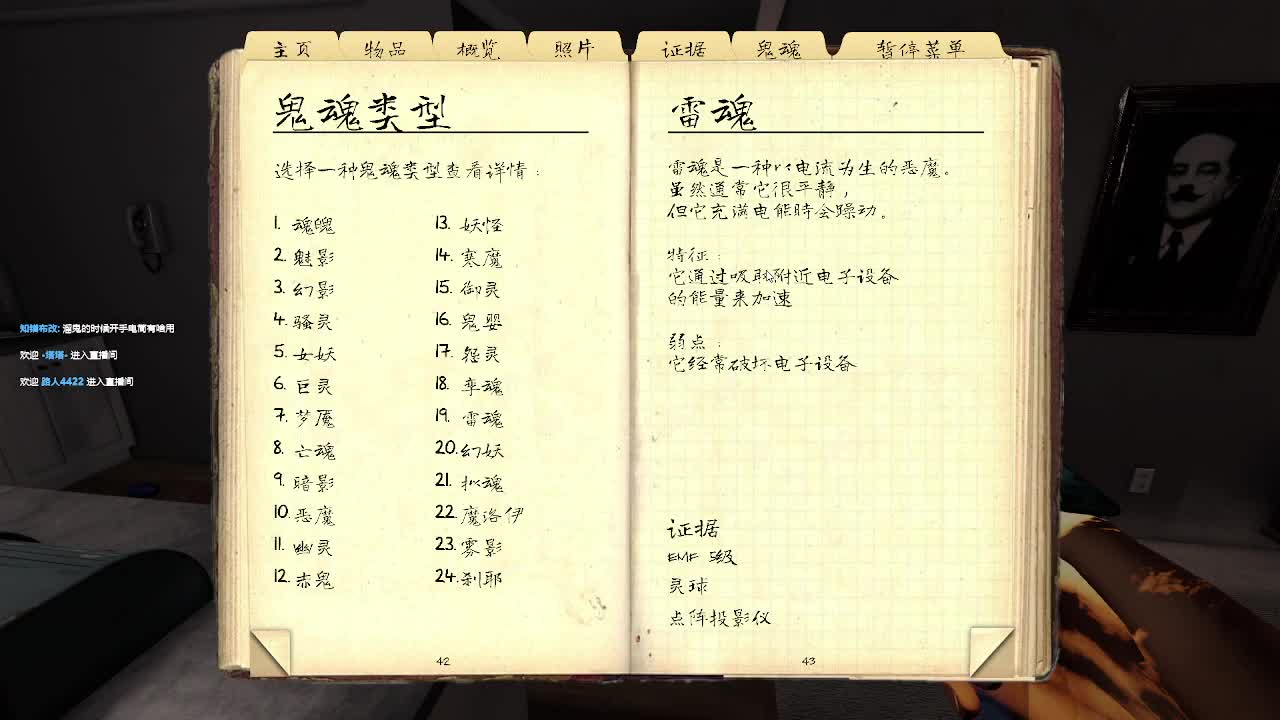 主页 物品 概览 照片 证据 鬼魂 暂停菜单
鬼魂类型
选择一种鬼魂类型查看详情：
1. 魂魄
2. 魅影
3. 幻影
4. 骚灵
5. 女妖
6. 巨灵
7. 梦魇
8. 亡魂
9. 暗影
10. 恶魔
11. 幽灵
12. 赤鬼
13. 妖怪
14. 寒魔
15. 御灵
16. 鬼婴
17. 怨灵
18. 孪魂
19. 雷魂
20. 幻妖
21. 拟魂
22. 魔洛伊
23. 雾影
24. 刹耶
42
雷魂
雷魂是一种以电流为生的恶魔。
虽然通常它很平静，
但它充满电能时会躁动。
特征：
它通过吸取附近电子设备
的能量来加速
弱点：
它经常破坏电子设备
证据
EMF 5级
灵球
点阵投影仪
43
知错布改: 遛鬼的时候开手电筒有啥用
欢迎 -塔塔- 进入直播间
欢迎 路人4422 进入直播间